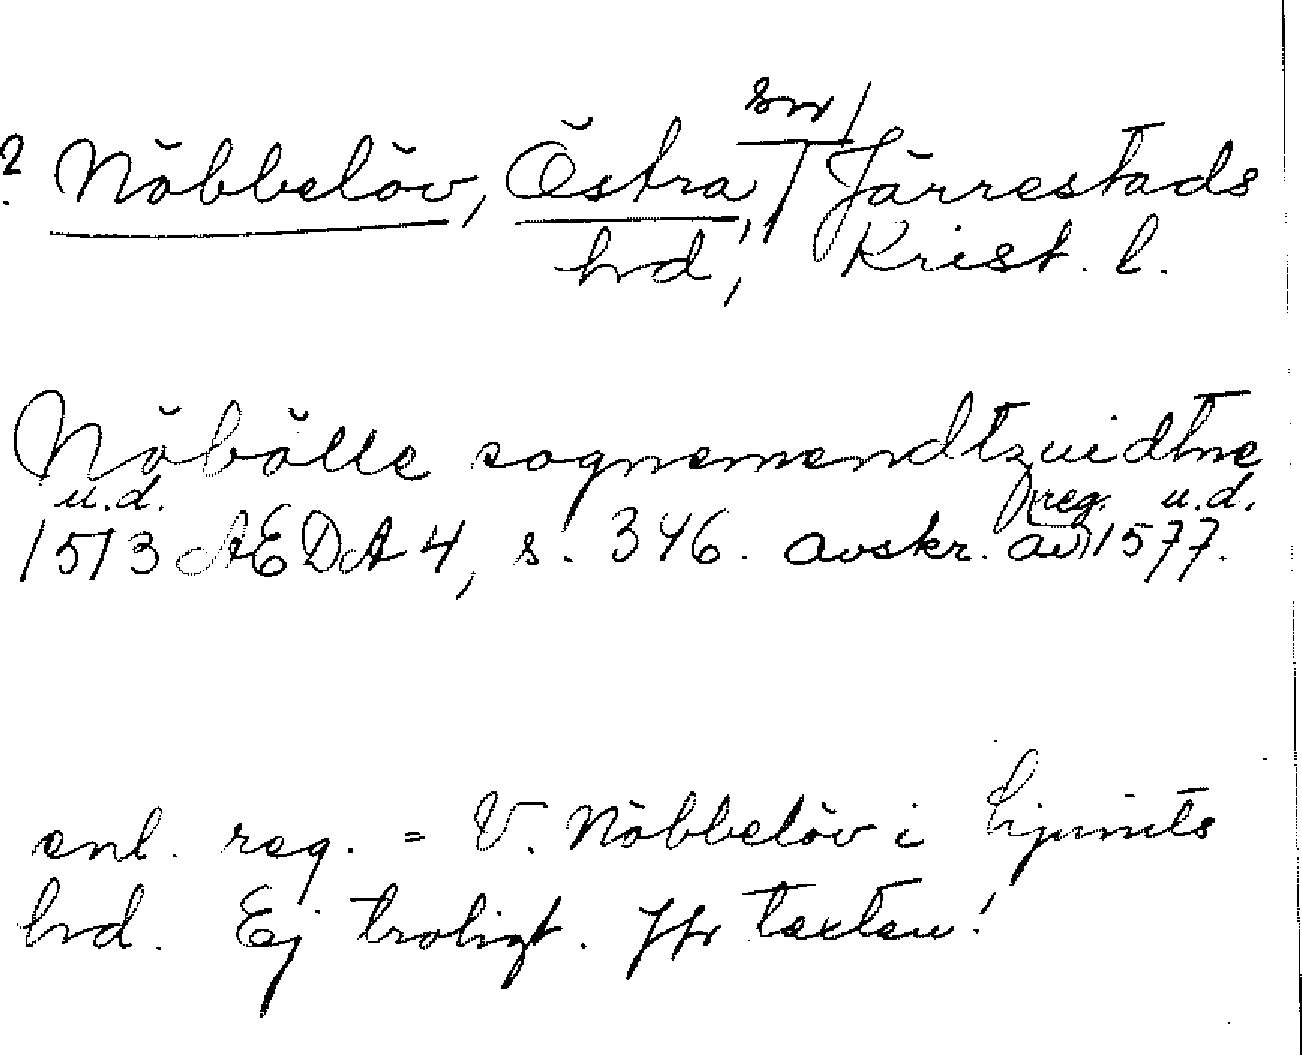 ? Nöbbelöv, Östra, sn/ Järrestads
hrd, Krist. l.
Nöbölle sognemendtzuidtne
u.d. reg. u.d.
1513 AEDA 4, s. 346. avskr. av 1577.
enl. reg. = V. Nöbbelöv i Ljunits
hrd. Ej troligt. Jfr texten!